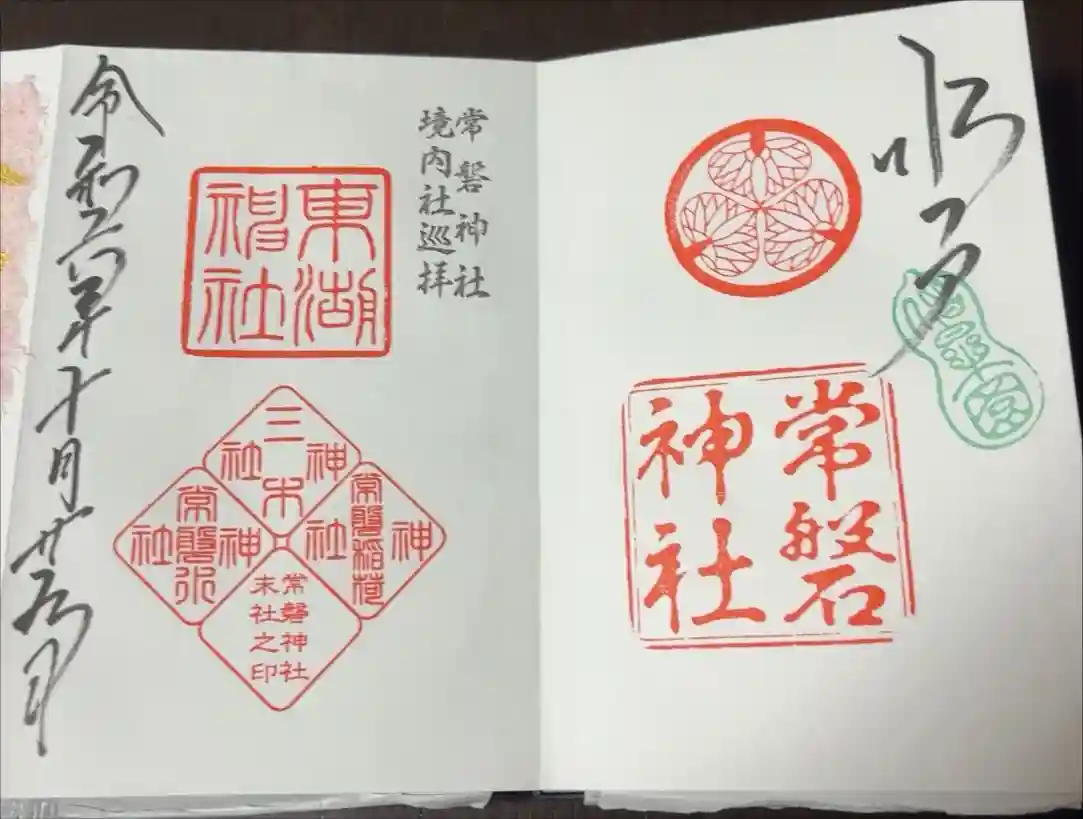 水戸
常磐
神社
常磐神社
境内社巡拝
東湖
神社
三木
神社
常磐稲荷
神社
常磐水
神社
常磐神社
末社之印
令和六年十月廿 日